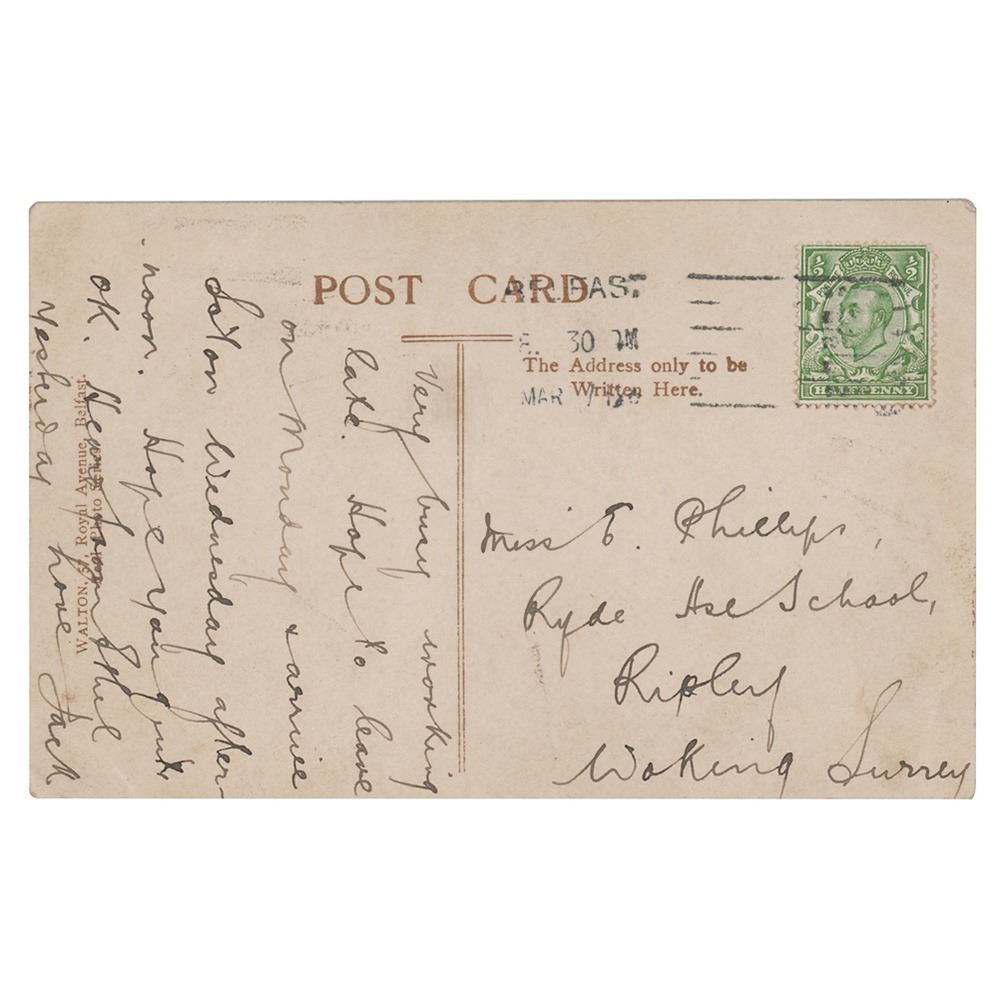 POST CARD
BELFAST
30 PM
MAR
½ ½
HALFPENNY
The Address only to be
Written Here.
Very busy working
late. Hope to leave
on Monday & arrive
Soton Wednesday after-
noon. Hope you quite
OK. Heard from Ethel
yesterday love Jack
WALTON, 57, Royal Avenue, Belfast.
Photo Series
Miss E. Phillips,
Ryde Hse School,
Ripley
Woking Surrey